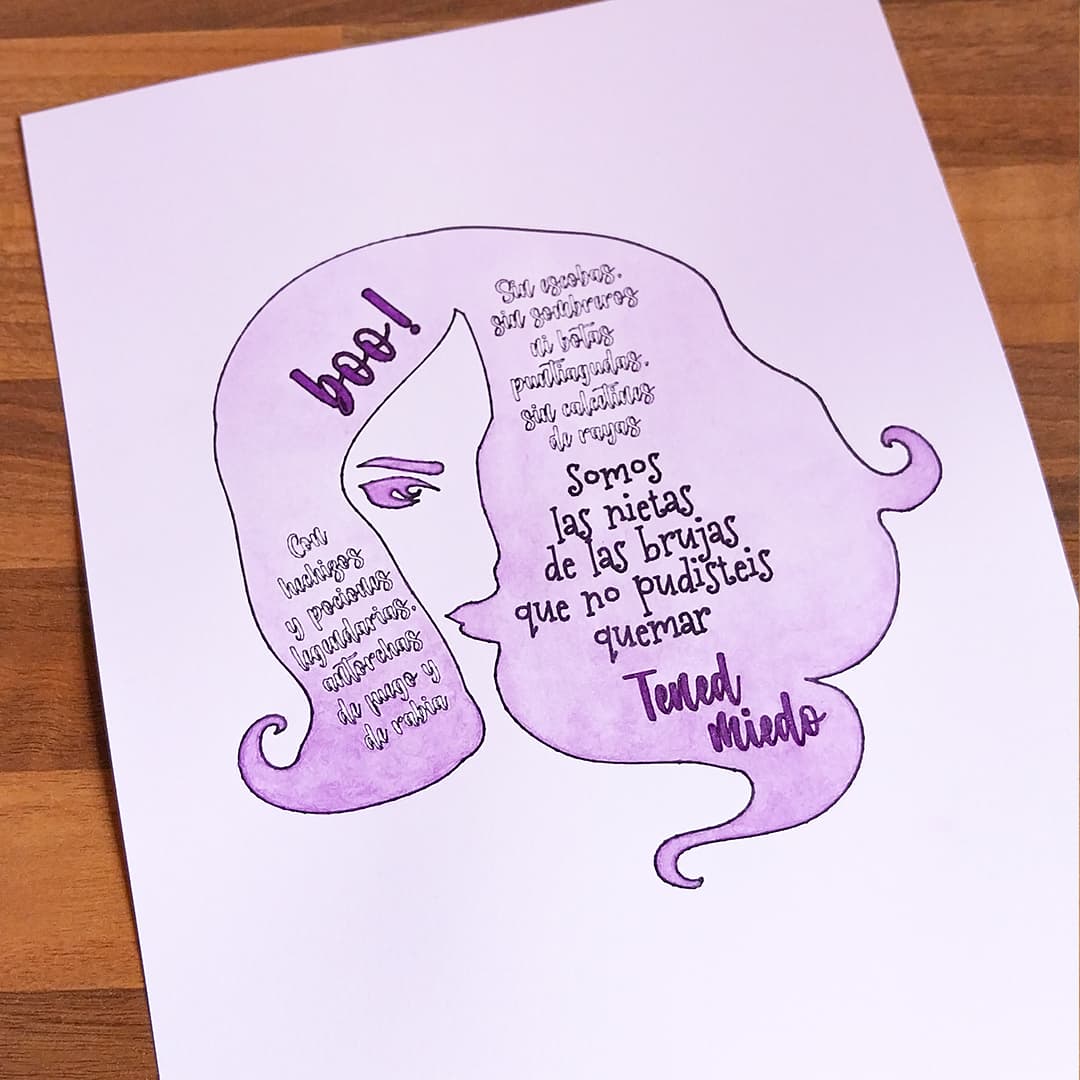 boo!
Sin escobas,
sin sombreros
ni botas
puntiagudas,
sin calcetines
de rayas
Con
hechizos
y pociones
legendarias,
antorchas
de fuego y
de rabia
Somos
las nietas
de las brujas
que no pudisteis
quemar
Tened
miedo